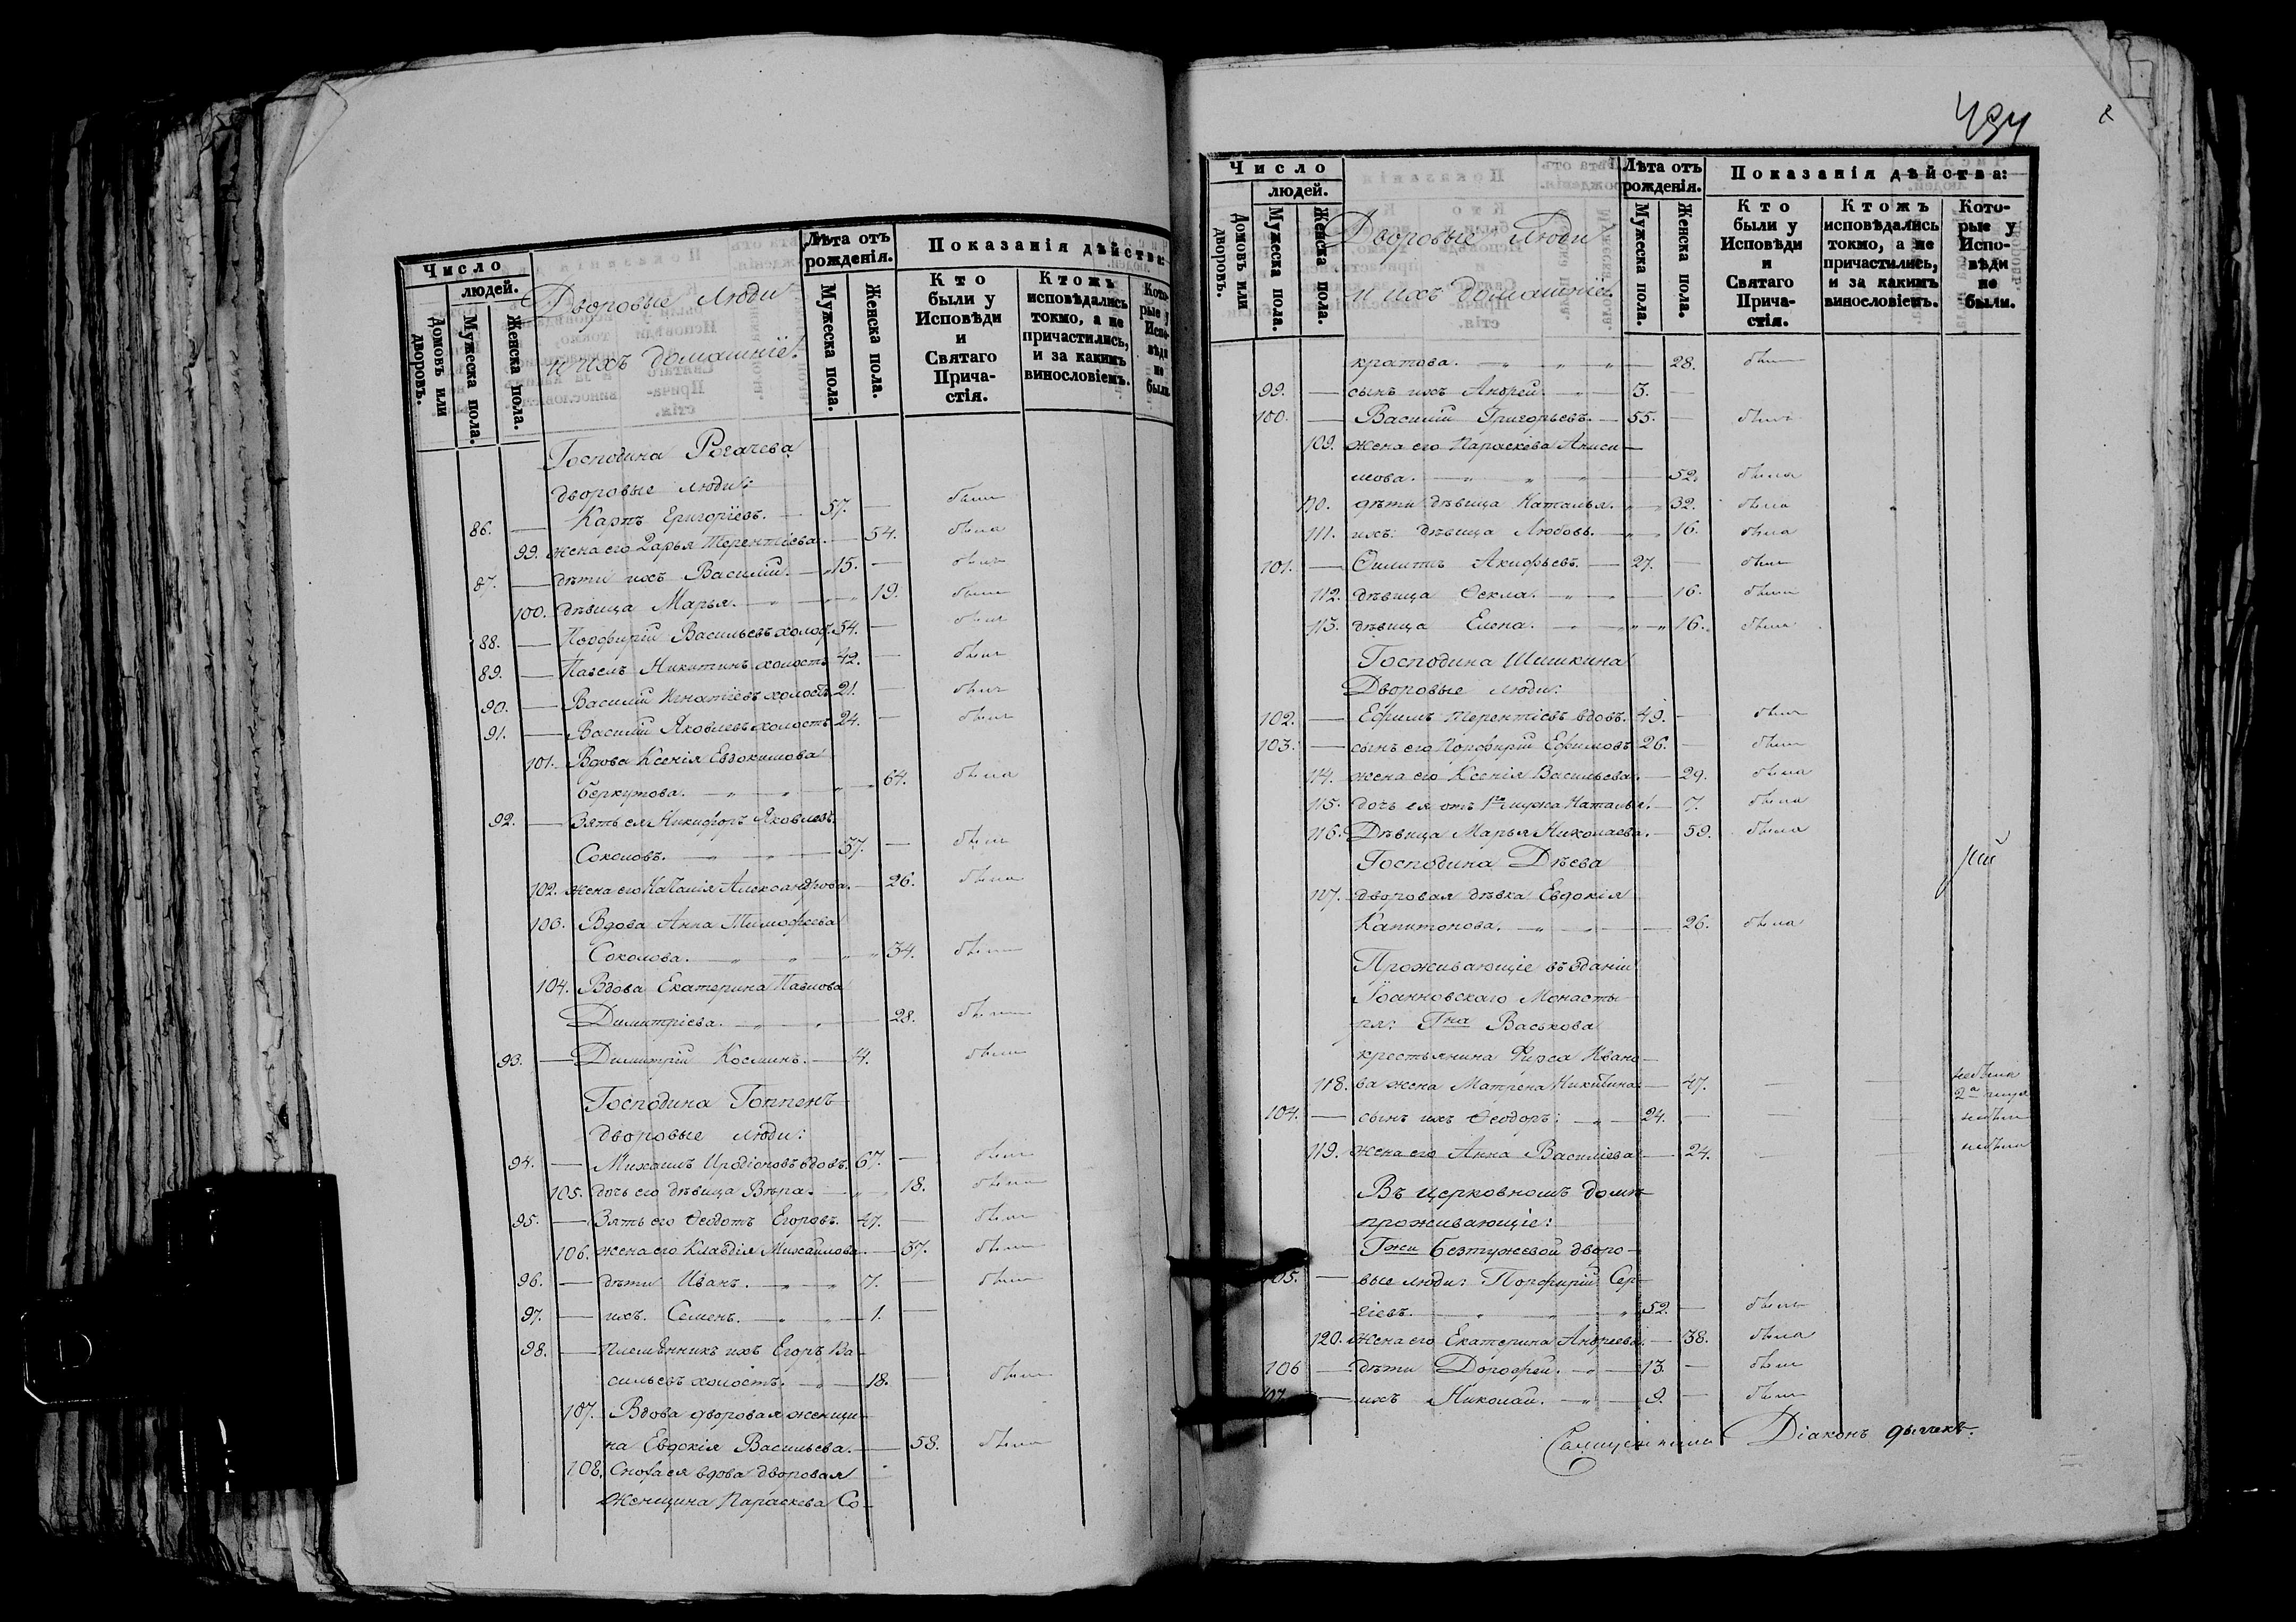 Число
людей.
Домовъ или дворовъ.
Мужеска пола.
Женска пола.
Дворовые Люди
и ихъ домашніе.
Лѣта отъ рожденія.
Мужеска пола.
Женска пола.
Показанія дѣйства:
Кто были у Исповѣди и Святаго Причастія.
Ктожъ исповѣдались токмо, а не причастились, и за какимъ винословіемъ.
Которые у Исповѣди не были.
Господина Рогачева
дворовые люди:
86. — Карпъ Григоріевъ. — 57. — былъ
99. жена его Дарья Терентіева. — 54. была
87. — дѣти ихъ Василій. — 15. — былъ
100. дѣвица Марья. — 19. была
88. — Порфирій Васильевъ холост. 54. — былъ
89. — Павелъ Никитинъ холостъ 42. — былъ
90. — Василій Игнатіевъ холостъ. 21. — былъ
91. — Василій Яковлевъ холостъ 24. — былъ
101. Вдова Ксенія Евдокимова
Беркутова. — 64. была
92. — Зять ея Никифоръ Яковлевъ
Соколовъ. — 37. — былъ
102. жена его Наталія Александрова. — 26. была
103. Вдова Анна Тимофеева
Соколова. — 34. была
104. Вдова Екатерина Павлова
Димитріева. — 28. была
93. — Димитрій Косминъ. — 4. былъ
Господина Гоппенъ
дворовые люди:
94. — Михаилъ Иродіоновъ вдовъ. 67. — былъ
105. дочь его дѣвица Вѣра. — 18. была
95. — Зять его Феодотъ Егоровъ. 47. — былъ
106. жена его Клавдія Михайлова. — 37. была
96. — дѣти Иванъ. — 7. — былъ
97. — ихъ. Семенъ. — 1. —
98. — племянникъ ихъ Егоръ Ва-
сильевъ холостъ. — 18. — былъ
107. Вдова дворовая женщи-
на Евдокія Васильева. — 58. была
108. Сноха ея вдова дворовая
женщина Параскева Со-
494
Число
людей.
Домовъ или дворовъ.
Мужеска пола.
Женска пола.
Дворовые Люди
и ихъ домашніе.
Лѣта отъ рожденія.
Мужеска пола.
Женска пола.
Показанія дѣйства:
Кто были у Исповѣди и Святаго Причастія.
Ктожъ исповѣдались токмо, а не причастились, и за какимъ винословіемъ.
Которые у Исповѣди не были.
кратова. — 28. была
99. — сынъ ихъ Андрей. — 3. —
100. — Василій Григорьевъ. — 55. — былъ
109. жена его Параскева Аниси-
мова. — 52. была
110. дѣти дѣвица Наталья. — 32. была
111. ихъ: дѣвица Любовь. — 16. была
101. — Филипъ Акифьевъ. — 27. — былъ
112. дѣвица Фекла. — 16. была
113. дѣвица Елена. — 16. была
Господина Шишкина
Дворовые люди:
102. — Ефимъ Терентіевъ вдовъ. 49. — былъ
103. — сынъ его Порфирій Ефимовъ 26. — былъ
114. жена его Ксенія Васильева. — 29. была
115. дочь ея отъ 1го мужа Наталья. — 7. была
116. Дѣвица Марья Николаева. — 59. была
Господина Дѣева
117. дворовая дѣвка Евдокія
Капитонова. — 26. была
Проживающіе въ зданіи
Іоанновскаго Монасты-
ря: Гна Васькова
крестьянина Фирса Ивано-
118. ва жена Матрена Никитина — 47. — — небыла
104. — сынъ ихъ Феодоръ: — 24. — — — небылъ
119. жена его Анна Василіева — 24. — — небыла
Въ церковномъ домѣ
проживающіе:
Гжи Безтужевой дворо-
105. — вые люди: Порфирій Сер-
гіевъ. — 52. — былъ
120. жена его Екатерина Андреева. — 38. была
106 — дѣти Дорофей. — 13. — былъ
107. — ихъ Николай. — 9. — былъ
Діаконъ